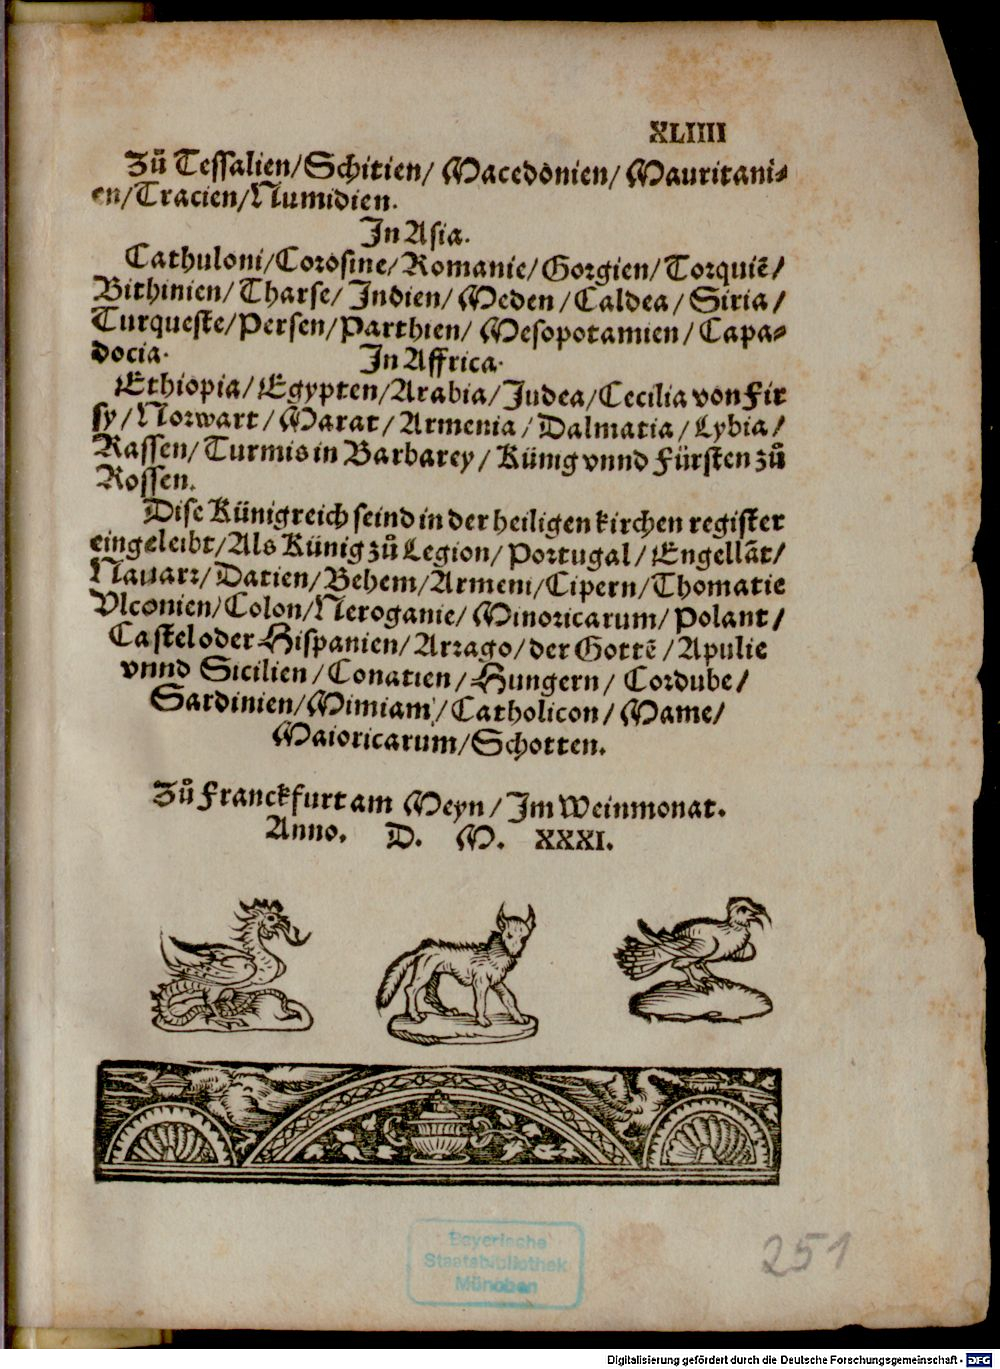 XLIIII
Zů Tessalien/Schitien/ Macedonien/Mauritani-
en/Tracien/Numidien.
In Asia.
Cathuloni/Corosine/Romanie/Gorgien/Torquiẽ/
Bithinien/Tharse/Indien/Meden/Caldea/Siria/
Turqueste/Persen/Parthien/Mesopotamien/Capa-
docia. In Affrica.
Ethiopia/Egypten/Arabia/Judea/Cecilia von Fir
sy/Norwart/Marat/Armenia/Dalmatia/Lybia/
Rassen/Turmis in Barbarey/Künig vnnd Fürsten zů
Rossen.
Dise Künigreich seind in der heiligen kirchen register
eingeleibt/Als Künig zů Legion/Portugal/Engellãt/
Nauarr/Datien/Behem/Armeni/Cipern/Thomatie
Vlconien/Colon/Neroganie/Minoricarum/Polant/
Castel oder Hispanien/Arrago/der Gottẽ/Apulie
vnnd Sicilien/Conatien/Hungern/Cordube/
Sardinien/Mimiam/Catholicon/Mame/
Maioricarum/Schotten.
Zů Franckfurt am Meyn/Im Weinmonat.
Anno. D. M. XXXI.
Bayerische
Staatsbibliothek
München
251
Digitalisierung gefördert durch die Deutsche Forschungsgemeinschaft - DFG